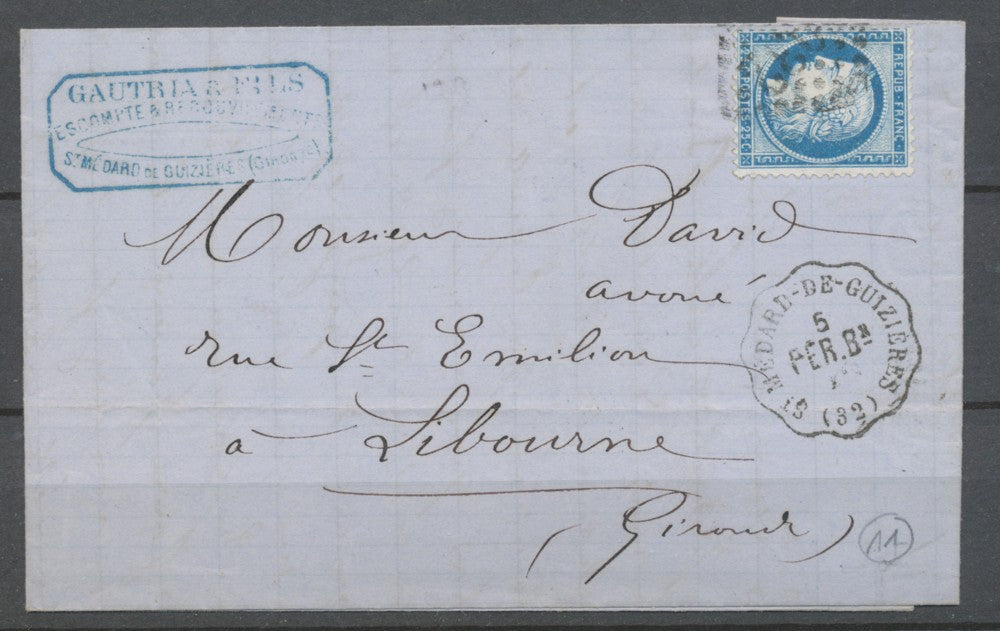 GAUTRIA & FILS
ESCOMPTE & RECOUVREMENTS
ST MÉDARD DE GUIZIÈRES (GIRONDE)
REPUB. FRANC.
POSTES 25C
Monsieur David
avoué
rue St Emilion
à Libourne
(Gironde)
ST MÉDARD-DE-GUIZIÈRES
5
PER. Bx
(32)
11